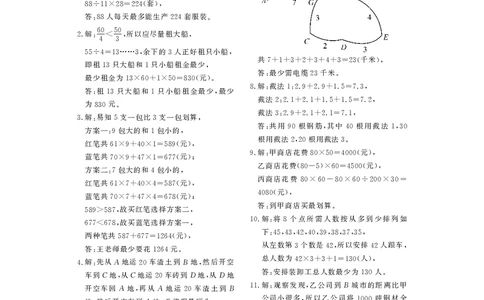 88÷11×28=224(套),
答:88人每天最多能生产224套服装。
2.解:60/4<50/3,所以应尽量租大船,
55÷4=13……3,余下的3人正好租只小船,
即租13只大船和1只小船租金最少,
最少租金为13×60+1×50=830(元)。
答:租13只大船和1只小船租金最少,最少
为830元。
3.解:易知5支一包比3支一包划算,
方案一:9包大的和1包小的,
红笔共61×9+40×1=589(元);
蓝笔共70×9+47×1=677(元);
方案二:7包大的和4包小的,
红笔共61×7+40×4=587(元),
蓝笔共70×7+47×4=678(元);
589>587,故买红笔选择方案二,
677<678,故买蓝笔选择方案一,
两种笔共587+677=1264(元),
答:王老师最少要花1264元。
4.解:先从A地运20车渣土到B地,然后开空
车到C地,从C地运20车砖到D地,从D地
开空车到A地,再从A地运20车渣土到B
7 G
3 4
C 2 D 3 E
共7+1+3+2+3+4+3=23(千米),
答:最少需电缆23千米。
8.解:截法1:2.9+2.9+1.5=7.3,
截法2:2.1+2.1+1.5+1.5=7.2,
截法3:2.9+2.1+2.1=7.1,
答:共用90根钢筋,其中40根用截法1,30
根用截法2,20根用截法3。
9.解:甲商店花费80×50=4000(元),
乙商店花费(80-5)×60=4500(元),
丙商店花费80×60-80×60÷200×30=
4080(元),
答:到甲商店买最划算。
10.解:将8个点所需人数按从多到少排列如
下:45,43,42,40,39,38,37,35,
从左数第3个数是42,所以安排42人跟车,
总人数为42×3+3+1=130(人),
答:安排装卸工总人数最少为130人。
11.解:观察发现,乙公司到B城市的距离比甲